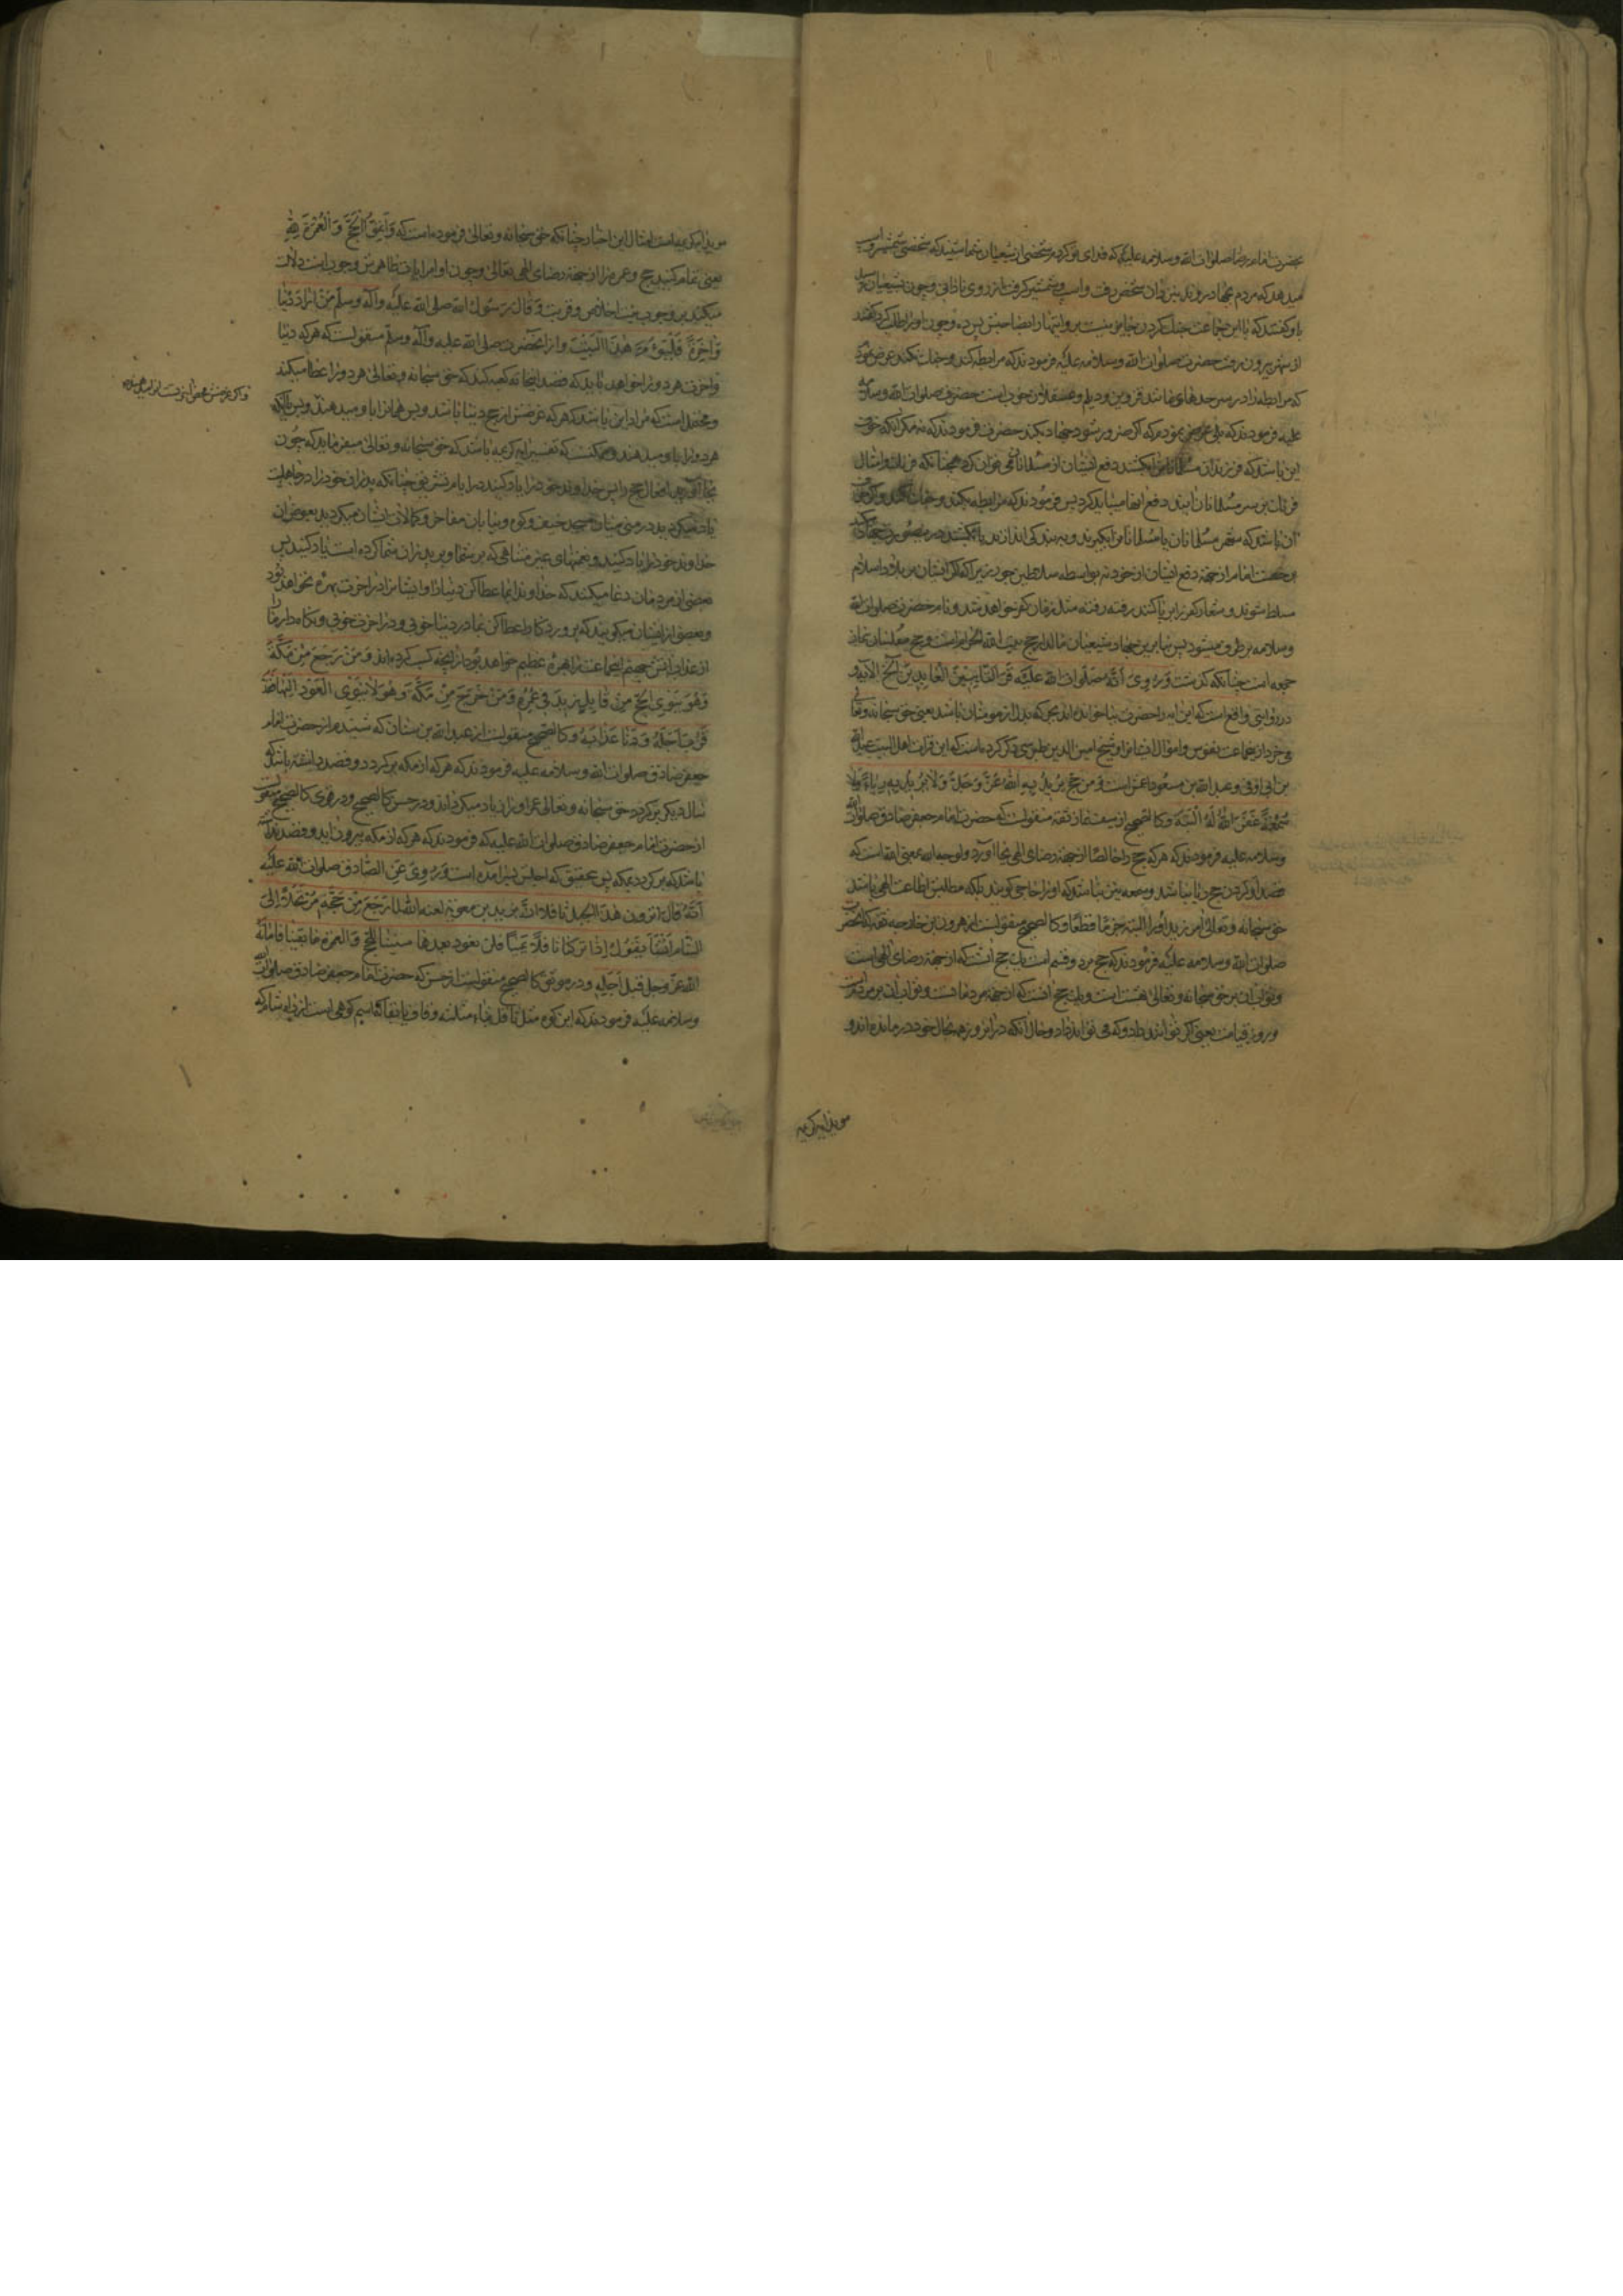 بحضرت امام رضا صلوات الله وسلامه علیه که فدای تو کردم شخصی از شیعیان شما شنید که شخصی شمشیر و اسب
میدهد که مردم بجهاد روند بنزد آن شخص رفت واسب وشمشیر گرفت از روی نادانی وچون شیعیان
باو گفتند که با این جماعت جنک کردن جایز نیست
از شهر بیرون رفت حضرت صلوات الله وسلامه علیه فرمودند که مرابطه کند و جنک نکند عرض نمود
که مرابطه را در سرحدهای باشد قزوین و دیلم و عسقلان خوب است حضرت صلوات الله وسلامه
علیه فرمودند که بلی عرض نمودم که اکر ضرور شود جهاد بکند حضرت فرمودند که نه مکر انکه خوف
این باشد که فرزندان مسلمانان را بکشند دفع ایشان از مسلمانان می توان کرد همچنانکه فرنک وامثال
فرنک بر سر مسلمانان ایند دفع انها میباید کرد پس فرمودند که مرابطه بکند و جنک نکند
ان باشد که شهر مسلمانان یا مسلمانان را بکیرند و به بندکی اندازند یا بکشند درین صورت جهاد
رخصت امام از جهة دفع ایشان از خود نه بواسطه سلاطین جور زیرا که اکر ایشان بر بلاد اسلام
مسلط شوند و شعار کفر را برپا کنند رفته رفته مثل زمان کفر خواهد شد و نام حضرت صلوات الله
وسلامه برطرف میشود پس بنابرین جهاد شیعیان مالدار حج بیت الله الحرام است و حج مفلسان نماز
جمعه است چنانکه کذشت وَرُوِیَ اَنَّهُ صَلَوات الله عَلَیْه قَرَأ التائبین العابدین الخ الآیه و
در روایتی واقع است که این ایه را حضرت بیا خوانده اند بجر که بدل از مومنان باشد یعنی حق سبحانه وتعالی
می خرد از جماعت نفوس واموال ایشانرا و شیخ امین الدین طبرسی ذکر کرده است که این قراءت اهل البیت عبدالله
بن ابی اوفی وعبد الله بن مسعود اعمش است وَ مَن حَجَّ یُریدُ بِهِ اللهَ عَزَّ وَجَلَّ وَلا یُریدُ بِهِ رِیاءً وَلا
سُمْعَةً غَفَرَ اللهُ لَهُ اَلْبَتَّةَ وکالصحیح از سیف از ثقه منقولست که حضرت امام جعفر صادق صلوات الله
وسلامه علیه فرمودند که هر که حج را خالصا از جهة رضای الهی بجا آورد و لوجه الله بمعنی انست که
قصد او کردن حج ریا نباشد و سمعه نیز نباشد که او را حاجی کویند بلکه مطلبش اطاعت الهی باشد
حق سبحانه وتعالی می آمرزد او را البته جزما قطعا وکالصحیح منقولست از هرون بن خارجه ثقه که انحضرت
صلوات الله وسلامه علیه فرمودند که حج بر دو قسم است یک حج انست که از جهة رضای الهی است
وثواب ان بر حق سبحانه وتعالی هست ویک حج انست که از جهة مردمانست وثواب ان بر مردمست
در روز قیامت یعنی اکر توانند داد و کی می تواند داد و حال آنکه در انروز همه بحال خود درمانده اند و
موید ایه کریمه
موید ایه کریمه است امثال این اخبار چنانکه حق سبحانه وتعالی فرموده است که وَأتِمُّوا الحَجَّ وَ الْعُمْرَةَ لِلّٰهِ
یعنی تمام کنید حج و عمره را از جهة رضای الهی تعالی و چون اوامر ایات ظاهرش وجوب است دلالت
میکند بر وجوب نیت اخلاص و قربت وَ قالَ رَسُولُ الله صلی الله علیه وآله وسلّم مَنْ اَرادَ دُنْیا
وَاخِرَةً فَلْیَؤُمَّ هٰذَا الْبَیْتَ و از انحضرت صلی الله علیه وآله وسلّم منقولست که هر که دنیا
واخرت هر دو را خواهد باید که قصد اینخانه کعبه کند که حق سبحانه وتعالی هر دو را عطا میکند
ومحتمل است که مراد این باشد که هر که غرضش از حج دنیا باشد و بس همانرا باو میدهند و بس
هر دو را باو میدهند و ممکنست که تفسیر ایه کریمه باشد که حق سبحانه وتعالی میفرماید که چون
بجا آورید افعال حج را پس خداوند خود را یاد کنید در ایام تشریق چنانکه پدران خود را در جاهلیت
یاد میکردید در منی میان مسجد خیف و کوه و بیان مفاخر و کمالات ایشان میکردید بعوض ان
خداوند خود را یاد کنید و نعمتهای غیر متناهی که بر شما و بر پدران شما کرده است یاد کنید پس
بعضی از مردمان دعا میکنند که خداوندا بما عطا کن دنیا را و ایشانرا در اخرت بهره نخواهد بود
وبعضی از ایشان میکویند که پروردکارا عطا کن بما در دنیا خوبی و در اخرت خوبی و نکاه دار ما را
از عذاب آتش جهنم انجماعت را بهرۀ عظیم خواهد بود از انچه کسب کرده اند وَ مَنْ رَجَعَ مِنْ مَکَّةَ
وَهُوَ یَنْوِی الحَجَّ مِنْ قابِلٍ زِیدَ فی عُمْرِه وَ مَنْ خَرَجَ مِنْ مَکَّةَ وَهُوَ لا یَنْوِی العَوْدَ اِلَیْها فَقَدْ
قَرُبَ اَجَلُهُ وَ دَنا عَذابُهُ وکالصحیح منقولست از عبدالله بن سنان که شنیدم از حضرت امام
جعفر صادق صلوات الله وسلامه علیه فرمودند که هر که از مکه برکردد و قصد داشته باشد که
سال دیکر برکردد حق سبحانه وتعالی عمر او را زیاد میکرداند و در حسن کالصحیح و در قوی کالصحیح منقولست
از حضرت امام جعفر صادق صلوات الله علیه که فرمودند که هر که از مکه بیرون اید و قصد نداشته
باشد که برکردد بمکه پس بتحقیق که اجلش بسر آمده است وَرُوِیَ عَنِ الصّادق صلوات الله علیه
اَنَّهُ قالَ اترون هٰذَا الجبل ثافلا اِنَّ یزید بن معویة لعنه الله لَمّا رَجَعَ مِنْ حَجَّتِهِ مُرْتَحِلاً اِلی
الشّام اَنْشَأ یَقُولُ اِذا تَرَکْنا ثافِلاً یَمیناً فَلَنْ نَعُودَ بَعْدَها سِنینا لِلحَجِّ وَ العمرة ما بَقینا فَاَماتَهُ
الله عزّ وجل قبل اَجَلِهِ و در موثق کالصحیح منقولست از حسن که حضرت امام جعفر صادق صلوات الله
وسلامه علیه فرمودند که این کوه مثل ثافل بثاء مثلثه وفا و یا بقاف اسم کوهی است از راه شام که